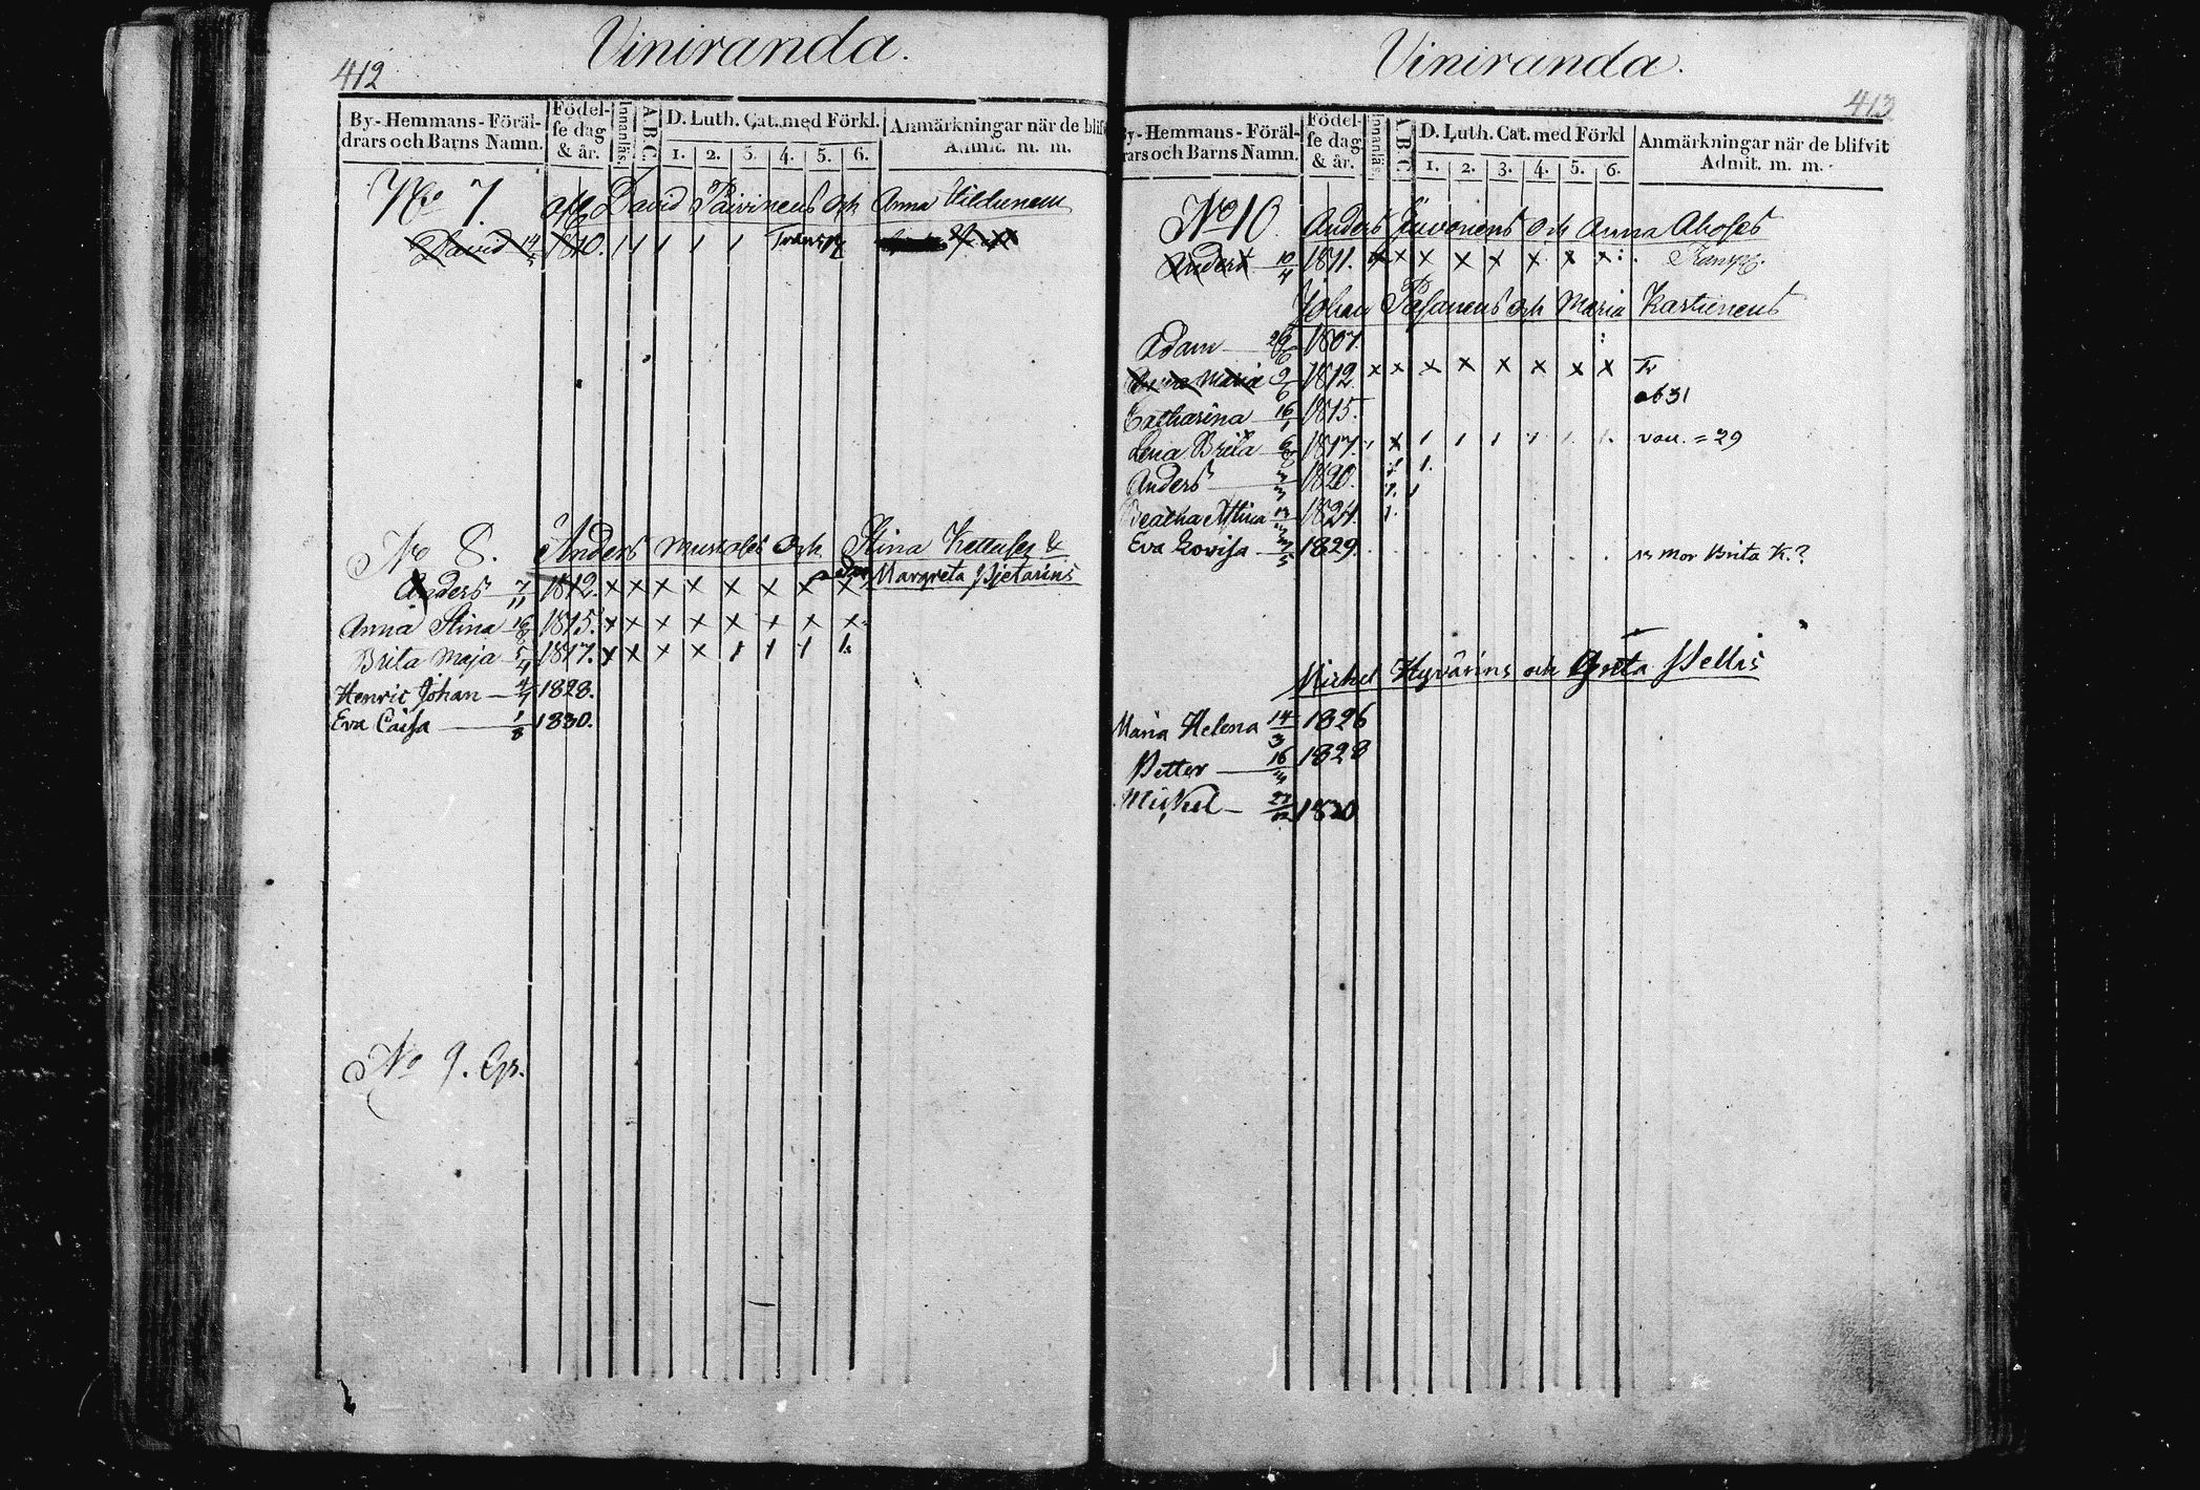 412
Viniranda.
By-Hemmans-Föräl-
drars och Barns Namn.
Födel-
se dag
& år.
Innanläs.
A.B.C.
D. Luth. Cat. med Förkl.
1. 2. 3. 4. 5. 6.
Anmärkningar när de blif
Admit. m. m.
No 7. David Päivinens och Anna
David 14 1810. 1 1 1 1 1 Transp
No 8. Anders Mustoses och Stina Kettuses &
Margreta Hjetarins
Anders 7/11 1812. x x x x x x x x
Anna Stina 16/8 1815. x x x x x x x x
Brita Maja 5/4 1817. x x x x 1 1 1 1.
Henric Johan 4/7 1828.
Eva Caisa 1/8 1830.
No 9.
Viniranda.
413
By-Hemmans-Föräl-
rars och Barns Namn.
Födel-
se dag
& år.
Innanläs
A.B.C.
D. Luth. Cat. med Förkl
1. 2. 3. 4. 5. 6.
Anmärkningar när de blifvit
Admit. m. m.
No 10. Anders Juvonens och Anna Ahoses
Anders 10/4 1811. x x x x x x x x Transp.
Johan Pasanens och Maria
Adam 1807.
Maria 9/6 1812. x x x x x x x x Tr
ob 31
Catharina 16/1 1815.
Lena Brita 6/8 1817. 1 x 1 1 1 1 1 1. = 29
Anders 1820. 1 1.
1824. 1.
Eva Lovisa 1829. Mor Brita K.?
Michel Hyvärins och Greta
Maria Helena 14/3 1826
Petter 16 1828
Michel 27/12 1830